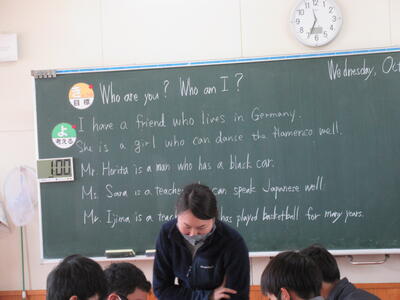 Wednesday, Oct
き
目標
Who are you? Who am I?
よ
考える
I have a friend who lives in Germany.
She is a girl who can dance the flamenco well.
1:00
Mr. Horita is a man who has a black car.
Ms. Sara is a teacher can speak Japanese well.
Mr. Ijima is a tea has played basketball for many years.